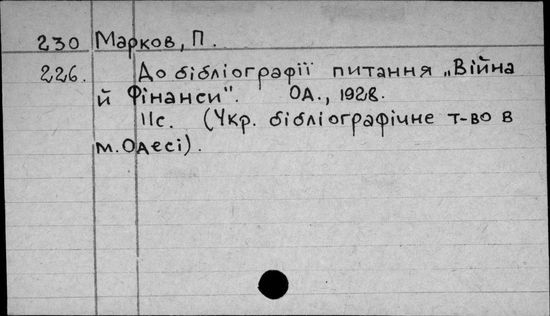 230 Марков, П.
226. До бібліографії питання „Війна
й Фінанси". ОД., 1928.
11с. (Укр. бібліографічне т-во в
м. Одесі).